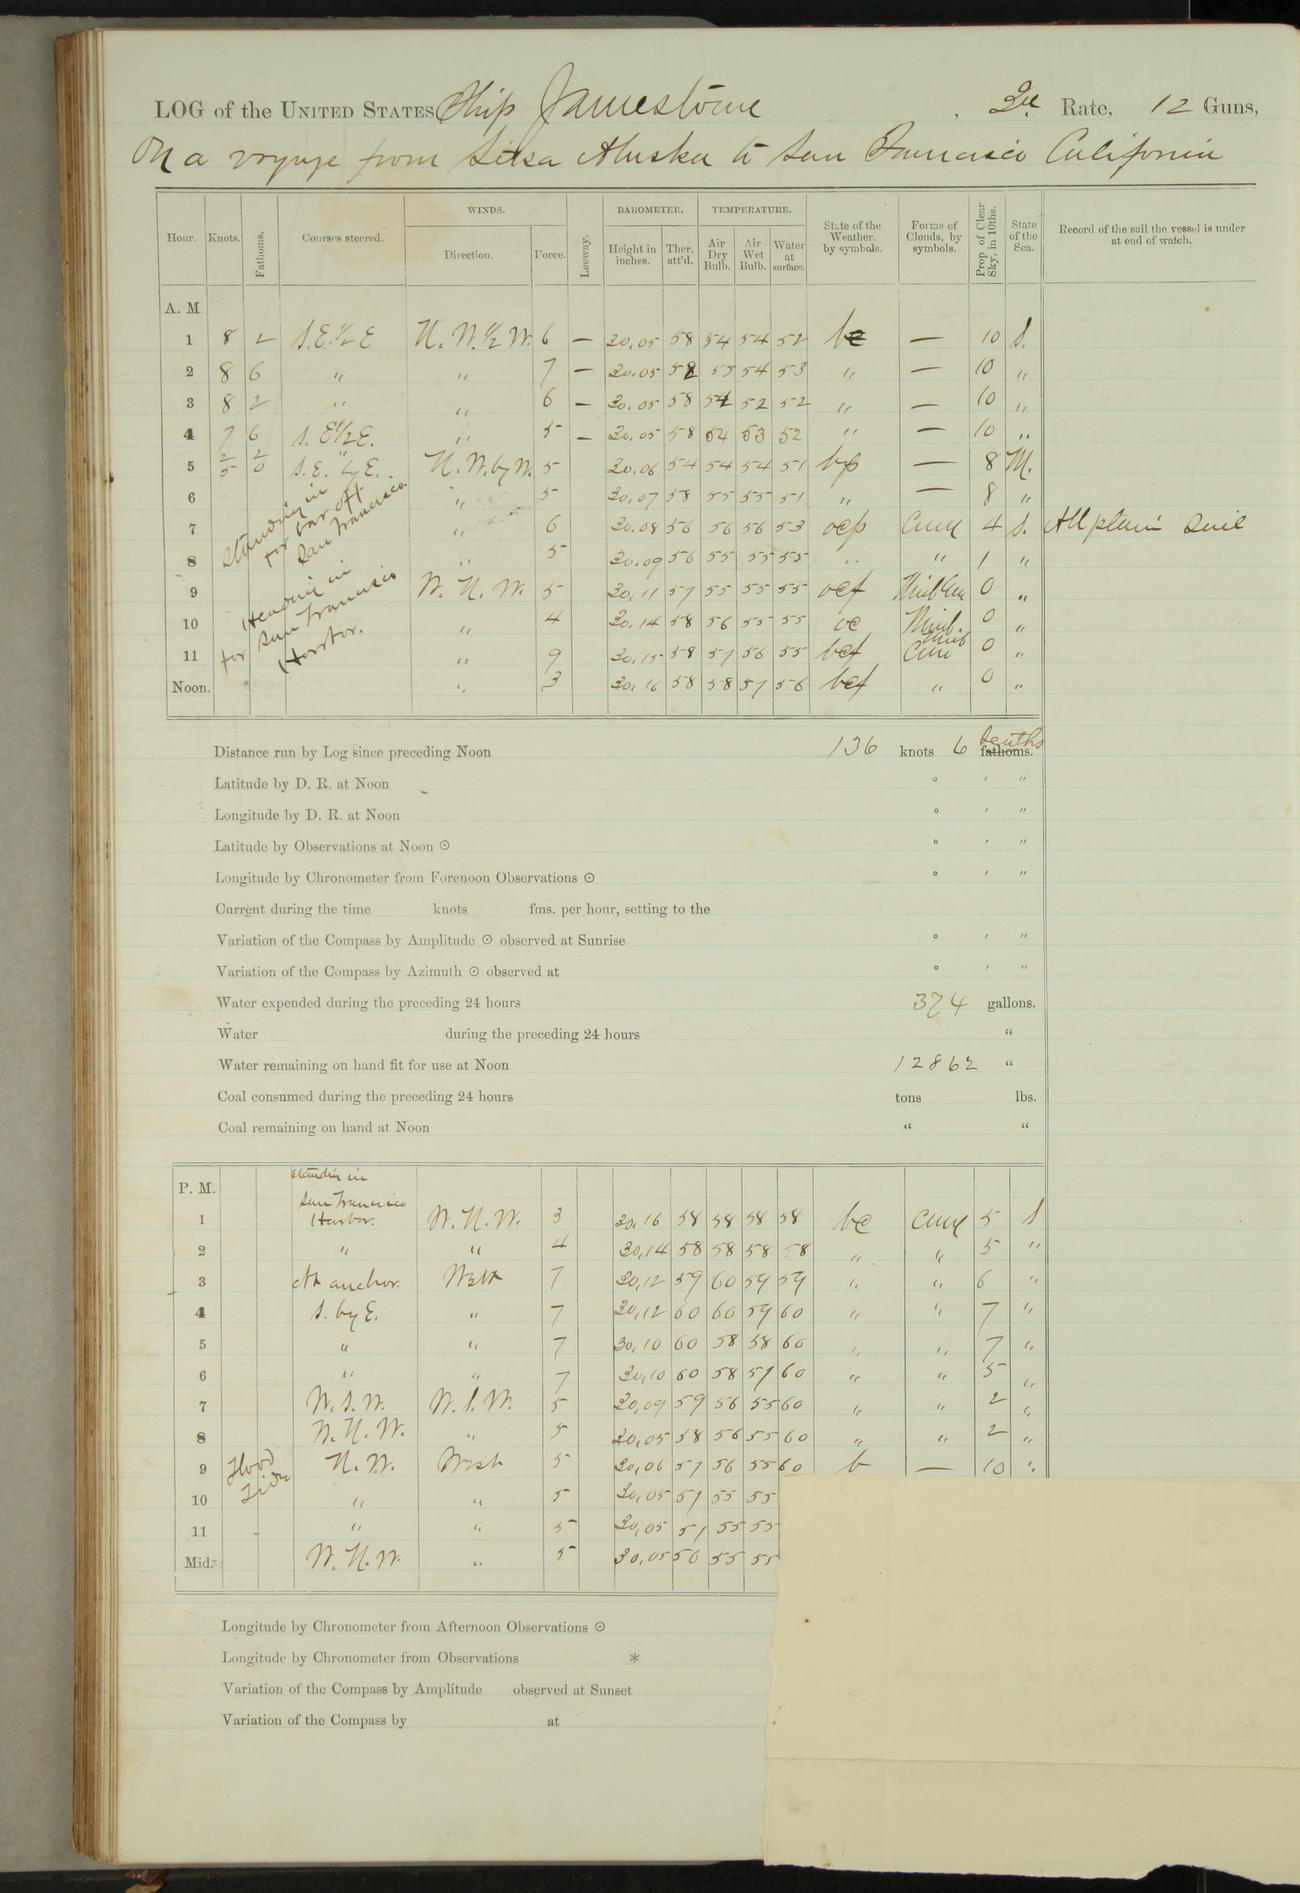 LOG of the UNITED STATES Ship Jamestown , 3d Rate, 12 Guns,
On a voyage from Sitka Alaska to San Francisco California
Hour. Knots. Fathoms. Courses steered. WINDS. Direction. Force. Leeway. BAROMETER. Height in inches. Ther. att'd. TEMPERATURE. Air Dry Bulb. Air Wet Bulb. Water at surface. State of the Weather, by symbols. Forms of Clouds, by symbols. Prop. of Clear Sky, in 10ths. State of the Sea. Record of the sail the vessel is under at end of watch.
A. M.
1 8 2 S.E.½E N.W.½W. 6 — 30.05 58 54 54 52 bc — 10 S.
2 8 6 " " 7 — 30.05 58 55 54 53 " — 10 "
3 8 2 " " 6 — 30.05 58 54 52 52 " — 10 "
4 7 6 S.E½E. " 5 — 30.05 58 54 53 52 " — 10 "
5 2/5 2/0 S.E. by E. N.W. by W. 5 30.06 54 54 54 51 bp — 8 M.
6 standing in for bar off San Francisco. " 5 30.07 58 55 55 51 " — 8 "
7 " 6 30.08 56 56 56 53 ocp Cum 4 S. All plain sail
8 " 5 30.09 56 55 55 55 " " 1 "
9 Heading in for San Francisco Harbor. W.N.W. 5 30.11 57 55 55 55 ocf Nimb Cum 0 "
10 " 4 30.14 58 56 55 55 oc Nimb. 0 "
11 " 9 30.15 58 57 56 55 bcf Cum Nimb 0 "
Noon. " 3 30.16 58 58 57 56 bcf " 0 "
Distance run by Log since preceding Noon 136 knots 6 tenths fathoms.
Latitude by D. R. at Noon ° ' "
Longitude by D. R. at Noon ° ' "
Latitude by Observations at Noon ☉ ° ' "
Longitude by Chronometer from Forenoon Observations ☉ ° ' "
Current during the time knots fms. per hour, setting to the
Variation of the Compass by Amplitude ☉ observed at Sunrise ° ' "
Variation of the Compass by Azimuth ☉ observed at ° ' "
Water expended during the preceding 24 hours 374 gallons.
Water during the preceding 24 hours "
Water remaining on hand fit for use at Noon 12862 "
Coal consumed during the preceding 24 hours tons lbs.
Coal remaining on hand at Noon " "
P. M.
1 Standin in San Francisco Harbor. W.N.W. 3 30.16 58 58 58 58 bc Cum 5 S
2 " " 4 30.14 58 58 58 58 " " 5 "
3 At anchor. West 7 30.12 59 60 59 59 " " 6 "
4 S. by E. " 7 30.12 60 60 59 60 " " 7 "
5 " " 7 30.10 60 58 58 60 " " 7 "
6 " " 7 30.10 60 58 57 60 " " 5 "
7 W.S.W. W.S.W. 5 30.09 59 56 55 60 " " 2 "
8 W.N.W. " 5 30.05 58 56 55 60 " " 2 "
9 Flood Tide N.W. West 5 30.06 57 56 55 60 b — 10 "
10 " " 5 30.05 57 55 55
11 " " 5 30.05 57 55 55
Mid. W.N.W. " 5 30.05 56 55 55
Longitude by Chronometer from Afternoon Observations ☉
Longitude by Chronometer from Observations *
Variation of the Compass by Amplitude observed at Sunset
Variation of the Compass by at